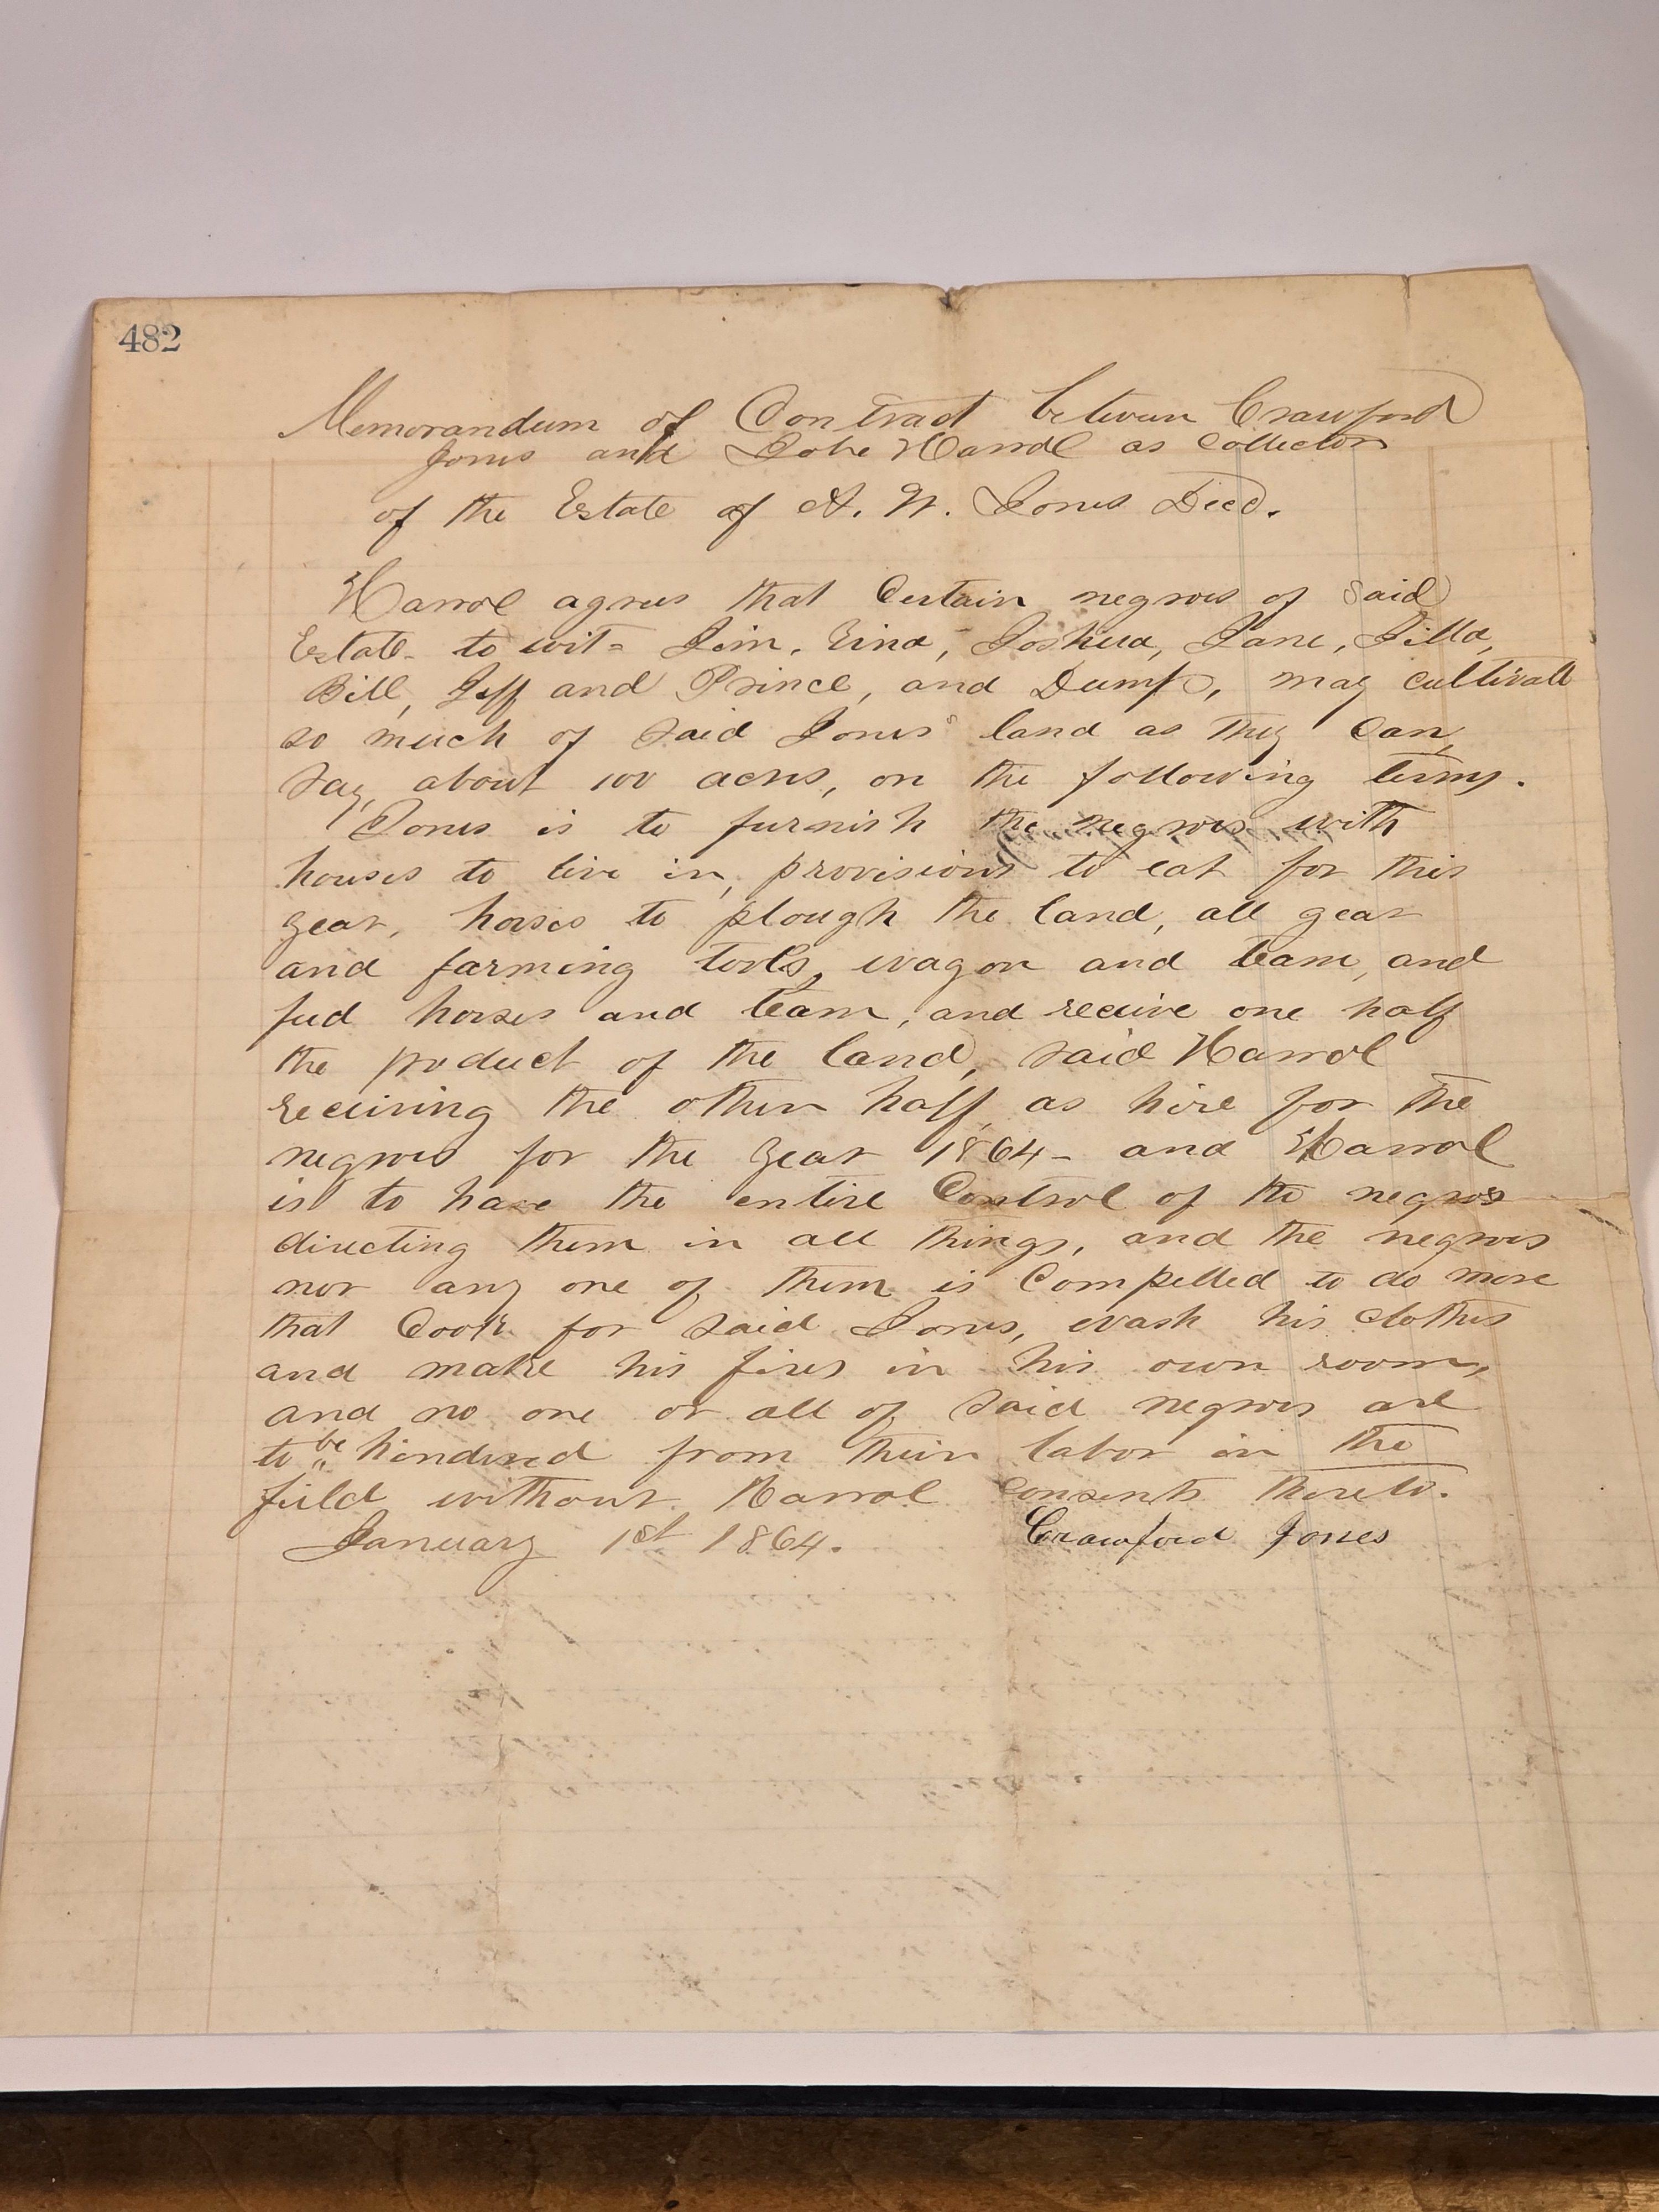 482
Memorandum of Contract between Crawford
Jones and Harrol as Collector
of the Estate of A. W. Jones Decd.
Harrol agrees that Certain negroes of said
Estate - to wit = Jim, Joshua, Jane,
Bill, Jeff and Prince, and Dump, may cultivate
so much of said Jones' land as they Can,
say, about 100 acres, on the following terms.
Jones is to furnish the negroes with
houses to live in, provisions to eat for this
year, horses to plough the land, all gear
and farming tools, wagon and team, and
feed horses and team, and receive one half
the product of the land, said Harrol
receiving the other half, as hire for the
negroes for the year 1864 - and Harrol
is to have the entire Control of the negroes
directing them in all things, and the negroes
nor any one of them is Compelled to do more
that Cook for said Jones, wash his clothes
and make his fires in his own room,
and no one or all of said negroes are
to be hindered from their labor in the
field without Harrol consents thereto.
January 1st 1864. Crawford Jones